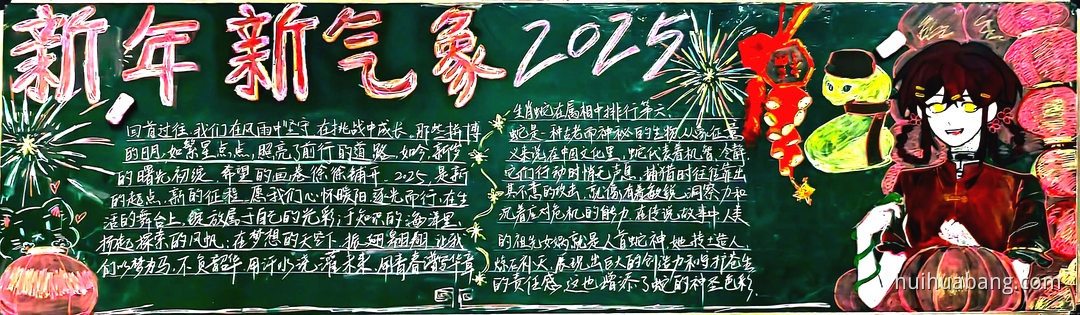 新年新气象 2025
回首过往,我们在风雨中坚守,在挑战中成长,那些拼搏
的日月,如繁星点点,照亮了前行的道路。如今,新岁
的曙光初绽,希望的画卷徐徐铺开。2025,是新
的起点,新的征程,愿我们心怀暖阳逐光而行,在生
活的舞台上,绽放属于自己的光彩;于知识的海洋里,
扬起探索的风帆;在梦想的天空下,振翅翱翔,让我
们以梦为马,不负韶华,用汗水浇灌未来,用青春谱写华章
生肖蛇在属相中排行第六、
蛇是一种古老而神秘的生物,从象征意
义来说在中国文化里,蛇代表着机智、冷静,
它们行动时悄无声息,捕猎时往往靠出
其不意的攻击,就像有着敏锐的洞察力和
沉着应对危机的能力,在传说故事中人类
的祖先女娲就是人首蛇神,她抟土造人,
炼石补天,展现出巨大的创造力和守护苍生
的责任感,这也增添了蛇的神圣色彩.
huihuabang.com